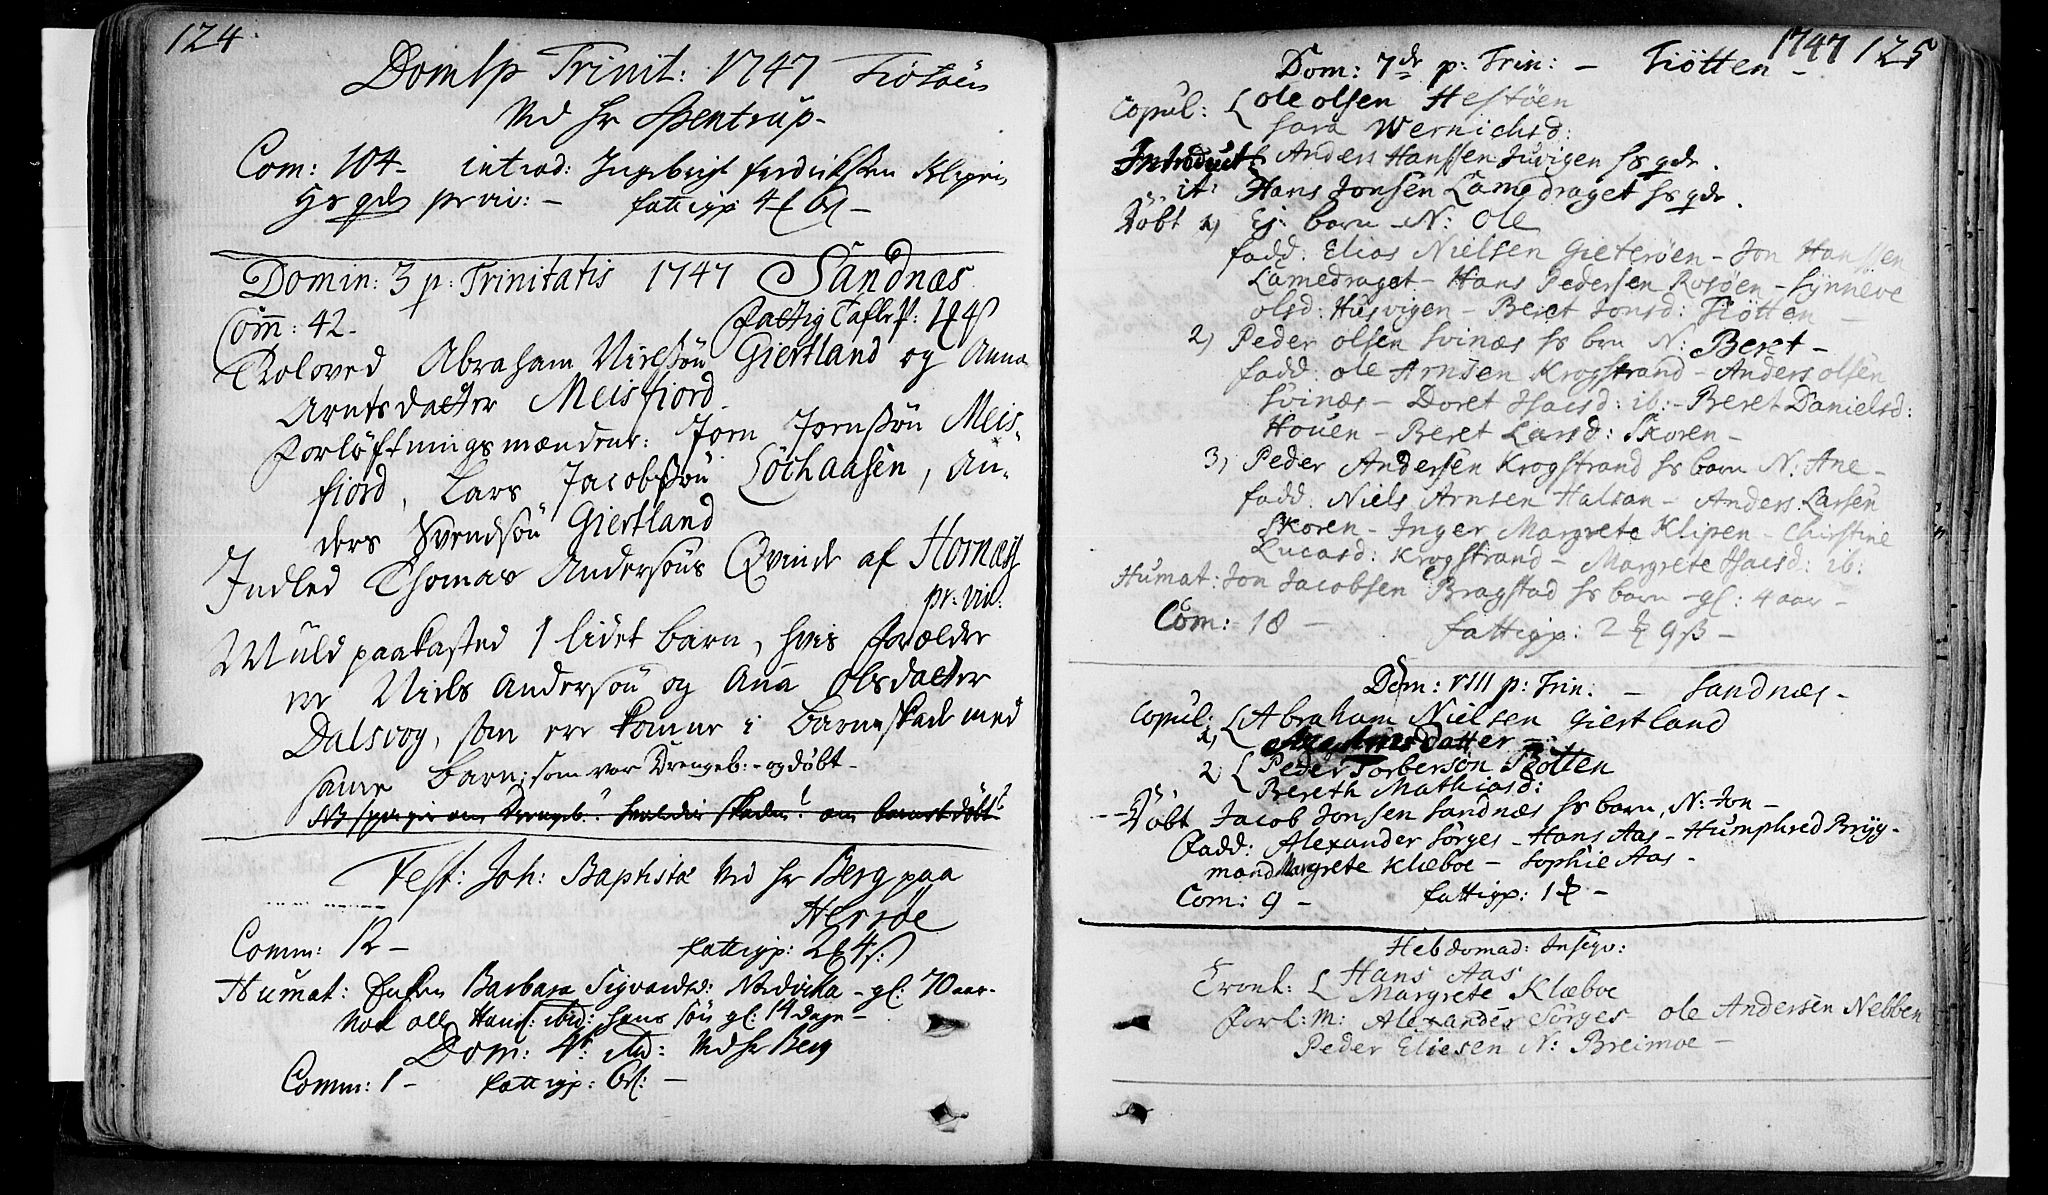 124.
Dom 1 p Trinit: 1747 Tiötöen
Ved Hr Spentrup-
Com: 104- introd: Ingebrigt fredriksen Klipen
Hs qde pr vin: - fattigp: 4
Domin: 3 p: Trinitatis 1747 Sandnæs
Com: 42- Fattig Tafle p: 44 ß
Troloved Abraham Nielsøn Giertland og Anna
Arntsdatter Meisfiord.
Forlöftningsmændene: Jorn Jornsøn Meis-
fiord, Lars Jacobsøn Lochaasen, An-
ders Svendsøn Giertland
Indled Thomas Andersøns Qvinde af Hornæs
pr: vin:
Muld paakasted 1 lidet barn, hvis forældre
er Niels Andersøn og Ana Olsdatter
Dalsvog, som ere komne i barneskade med
same barn; som var Drengeb:- og döbt-
NB spørges om Drengeb:? hvaldir skaden? om barnet döbt?
Fest: Joh: Baptistæ Ved Hr Berg paa
Herröe
Comm: 12- fattigp: 2 4 ß:
Humat: Enken Barbara Sigvardsd: Nordvika - gl: 70 aar-
Nok Hans: ibid: hans sön gl: 14 dage-
Dom: 4t: Ved Hr Berg
Comm: 1- fattigp: 6 ß: -
1747 125
Dom: 7de p: Trin: - Tiötten -
Copul: Ole olsen Hestöen
Sara Wernichsd:
Introduct: Anders Hanssen Juvigen hs qde.
it: Hans Jonsen Lamedraget hs qde.
Döbt 1) Ej: barn - N: Ole
fadd: Elias Nielsen Gieteröen - Jon Hanssen
Lamedraget - Hans Pedersen Rosöen - Synneve
olsd: Husvigen - Beret Jonsd: Tiötten -
2) Peder olsen Svinæs hs brn N: Beret -
fadd: ole Arnsen Krogstrand - Anders olsen
Svinæs - Doret Isacsd: ib: - Beret Danielsd:
Houen - Beret Larsd: Skoren -
3) Peder Andersen Krogstrand hs barn N: Ane -
fadd: Niels Arnsen Halsan - Anders Larsen
Skoren - Inger Margrete Klipen - Chirstine
Lucasd: Krogstrand - Margrete Isacsd: ib:
Humat: Jon Jacobsen Bragstad hs barn gl: 4 aar -
Com: 18 - fattigp: 2 9 ß -
Dom: VIII p: Trin: - Sandnæs -
Copul: Abraham Nielsen Giertland
1) datter -
2) Peder Torberson Tiötten
Bereth Mathiasd:
Döbt Jacob Jonsen Sandnæs hs barn, N: Jon -
Fadd: Alexander Sörges - Hans Aas - Humphred Bryg-
mand Margrete Klæboe - Sophie Aas -
Com: 9 - fattigp: 1 -
Hebdomad: Inseqv:
Trol: Hans Aas
Margrete Klæboe
Forl: M: Alexander Sörges ole Andersen Nebben
Peder Eliesen N: Breimoe -